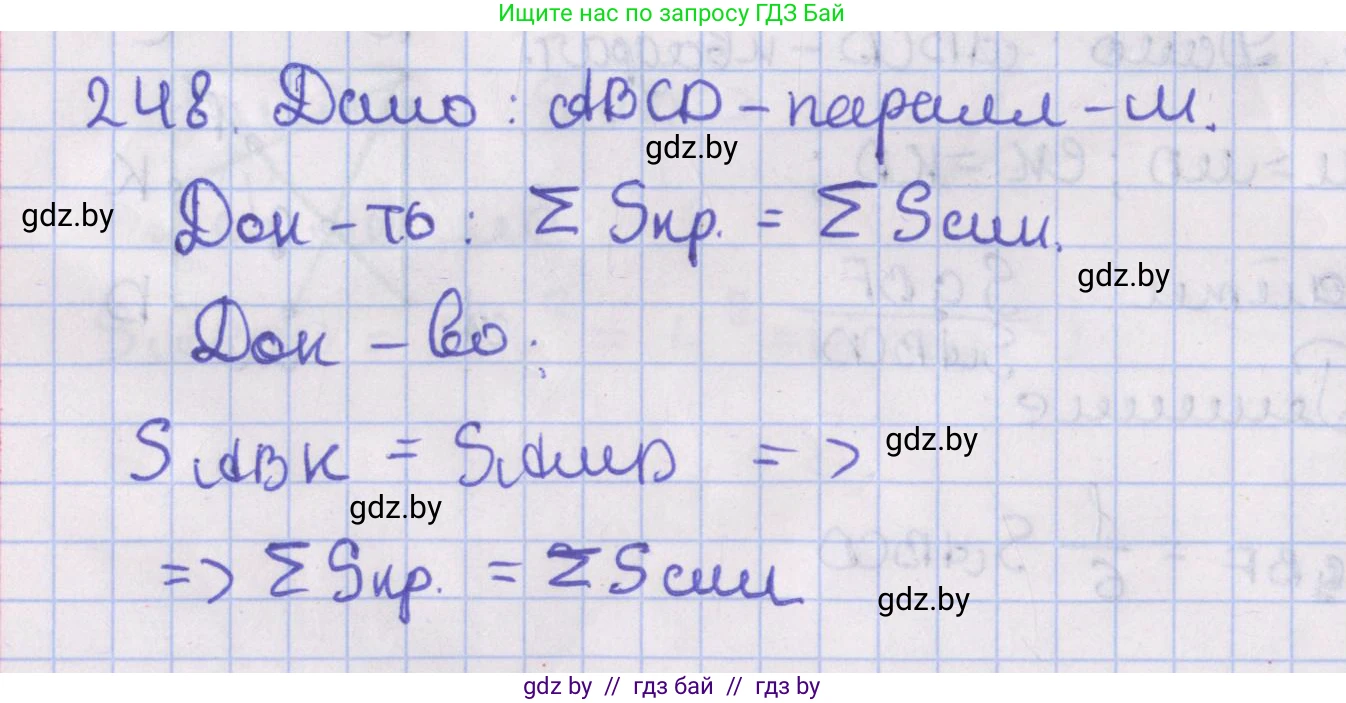 Ищите нас по запросу ГДЗ Бай
248. Дано : ABCD – паралл – м.
gdz.by
gdz.by
Док – ть : Σ Sкр. = Σ Sсин.
gdz.by
Док – во :
S ABK = S AMD = >
gdz.by
gdz.by
=> Σ Sкр. = Σ Sсин
gdz.by
gdz by // гдз бай // гдз by